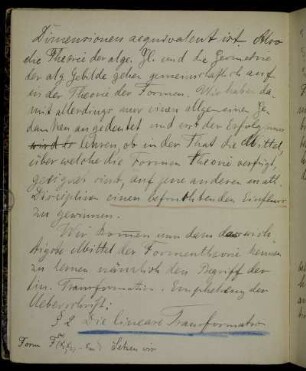 Dimensionen aequivalent ist. Also
die Theorie der alge. Gl. und die Geometrie
der alg. Gebilde gehen gemeinschaftlich auf
in der Theorie der Formen. Wir haben da-
mit allerdings nur einen allgemeinen Ge-
danken angedeutet und erst der Erfolg muss
lehren, ob in der That die Mittel,
über welche die Formen theorie verfügt,
geeignet sind, auf jene anderen math.
Disciplinen einen befruchtenden Einfluss
zu gewinnen.
Wir kommen nun dem wich-
tigste Mittel der Formentheorie kennen
zu lernen nämlich den Begriff der
lin. Transformation. Empfehlung der
Ueberschrift:
§ 2 Die lineare Transformation
Form F(x₁x₂...xₙ) Setzen wir